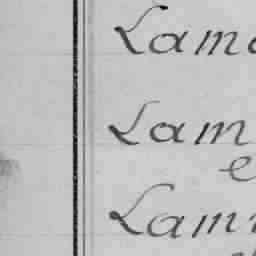 Lam
Lam
e
Lam